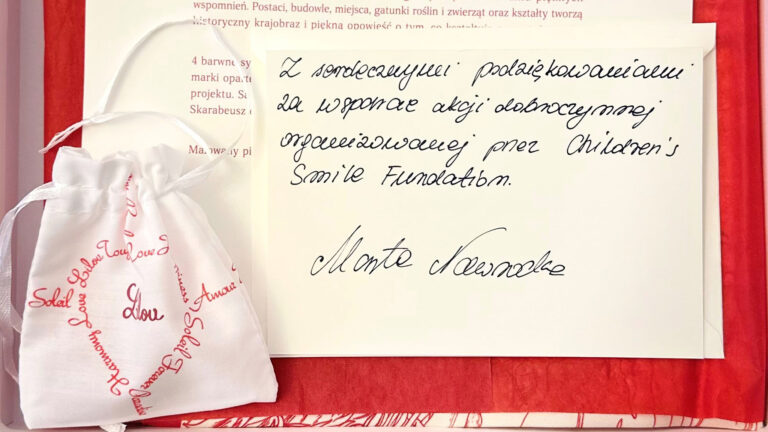 wspomnień. Postaci, budowle, miejsca, gatunki roślin i zwierząt oraz kształty tworzą
historyczny krajobraz i piękną opowieść o tym, co
4 barwne sy
marki opa
projektu. Sa
Skarabeusz
Malowany pi
Z serdecznymi podziękowaniami
za wsparcie akcji dobroczynnej
organizowanej przez Children's
Smile Fundation.
Marta Nawrocka
Soleil Love Lilou Love
Amour
Harmony Soleil Forever
Lilou